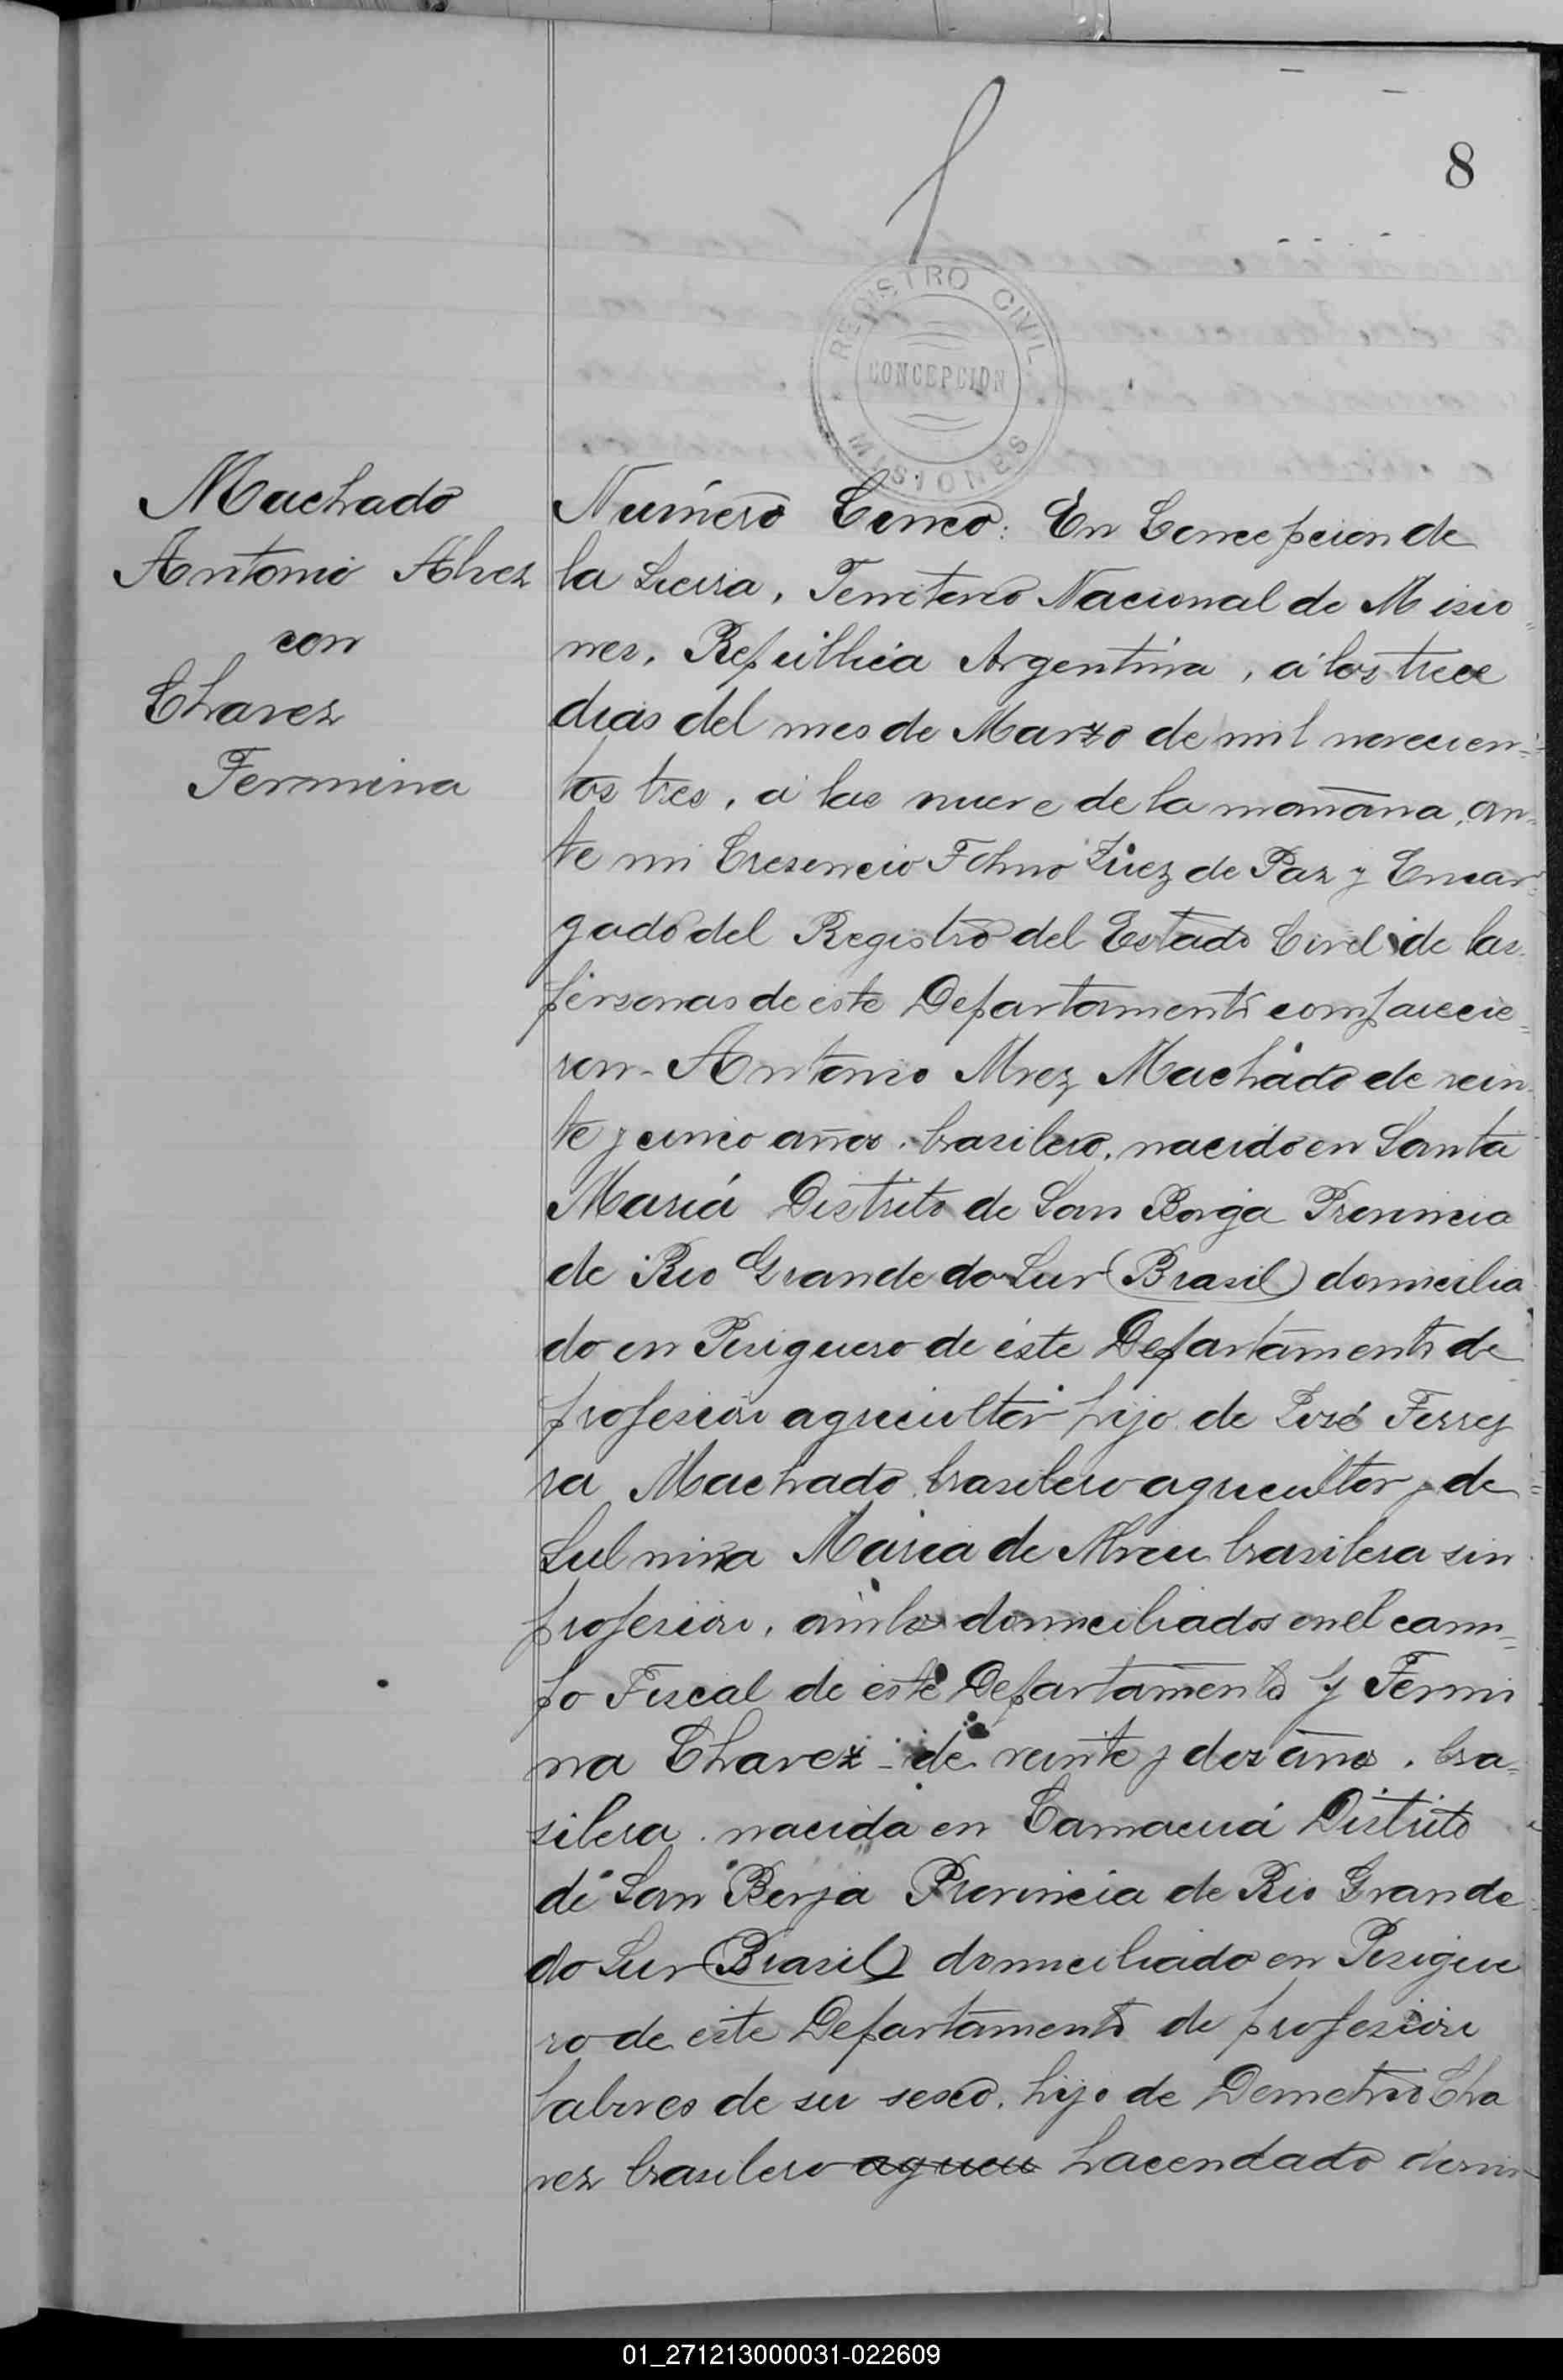 8
REGISTRO CIVIL
CONCEPCION
MISIONES
Machado
Antonio Alvez
con
Chavez
Fermina
Número Cinco: En Concepcion de
la Sierra, Territorio Nacional de Misio=
nes, República Argentina, á los trece
dias del mes de Marzo de mil novecien=
tos tres, á las nueve de la mañana, an=
te mi Cresencio Juez de Paz y Encar=
gado del Registro del Estado Civil de las
personas de este Departamento comparecie=
ron Antonio Alvez Machado de vein
te y cinco años, brasilero, nacido en Santa
María Distrito de San Borja Provincia
de Rio Grande do Sur (Brasil) domicilia
do en Persiguero de éste Departamento de
profesión agricultor hijo de José Ferrey
ra Machado brasilero agricultor y de
Maria de Abreu brasilera sin
profesión, ambos domiciliados en el cam=
po Fiscal de este Departamento y Fermi
na Chavez de veinte y dos años, bra=
silera nacida en Camacuá Distrito
de San Borja Provincia de Rio Grande
do Sur (Brasil) domiciliado en Persigue
ro de este Departamento de profesión
labores de su sexo, hijo de Demetrio Cha
vez brasilero agricu hacendado domi
01_271213000031-022609